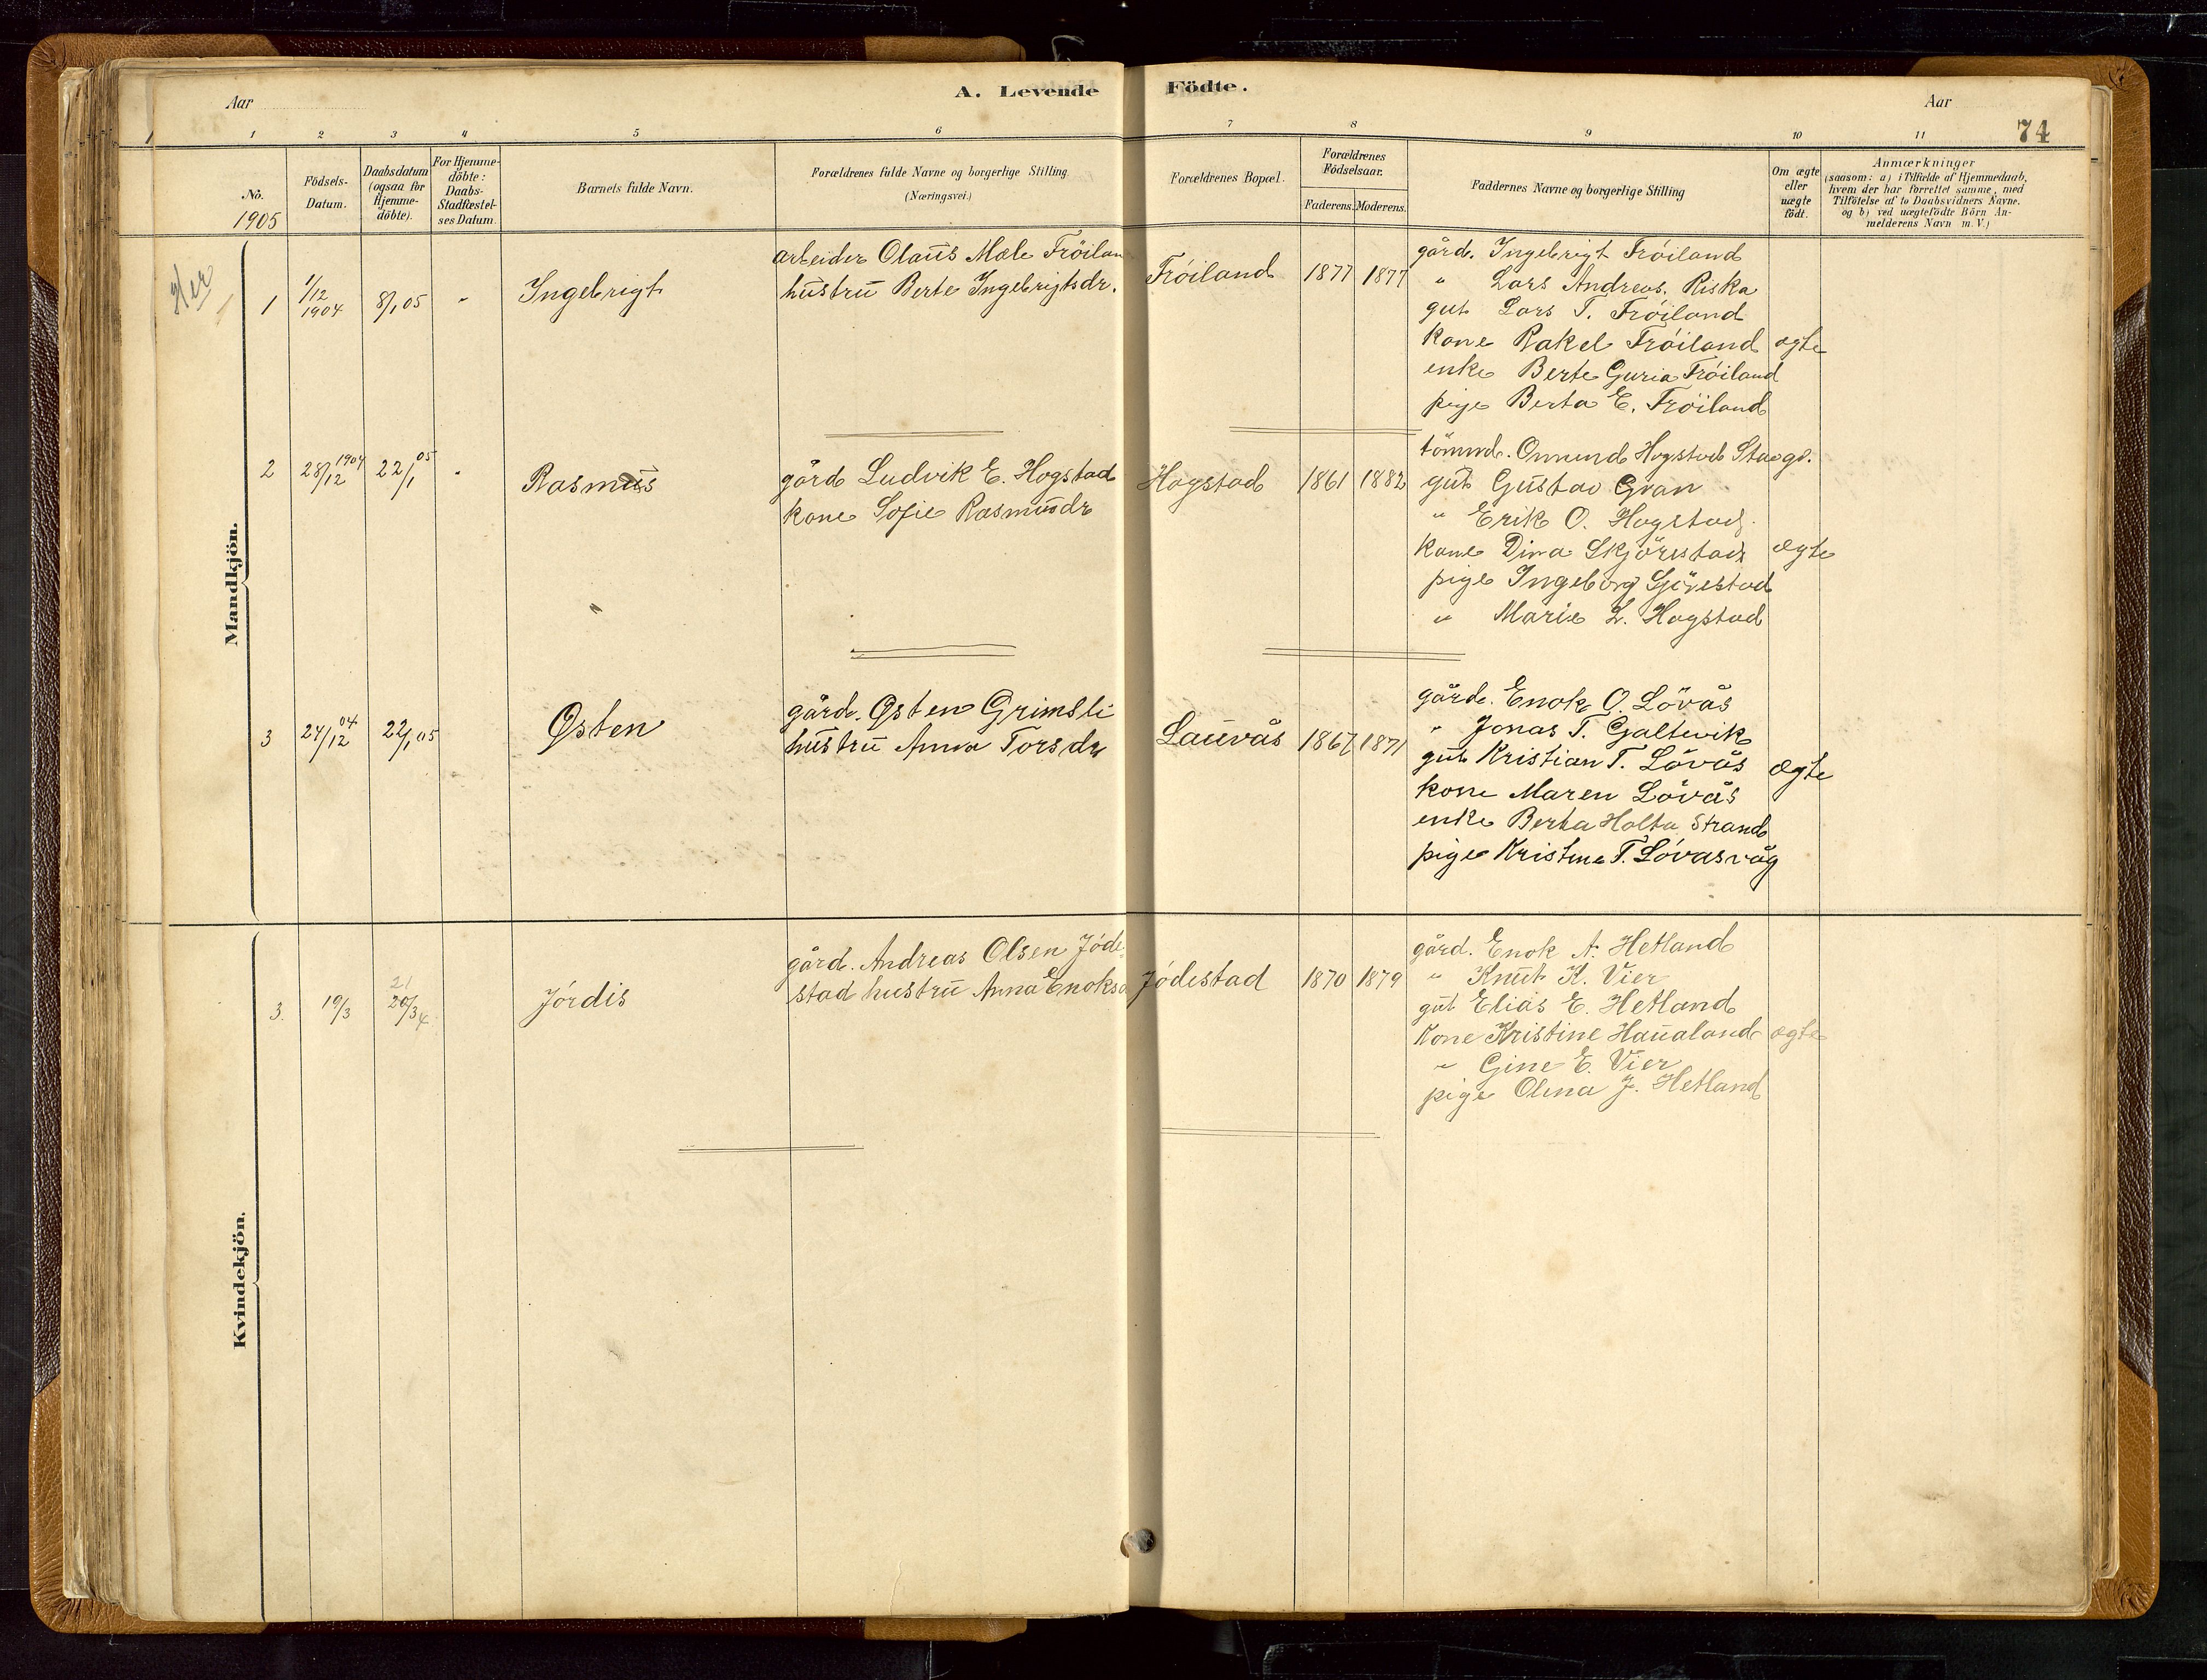 A. Levende Födte.
Aar
Aar
74
1 2 3 4 5 6 7 8 9 10 11
No.
1905
Födsels-
Datum.
Daabsdatum
(ogsaa for
Hjemme-
döbte).
For Hjemme-
döbte:
Daabs-
Stadfæstel-
ses Datum.
Barnets fulde Navn.
Forældrenes fulde Navne og borgerlige Stilling
(Næringsvei.)
Forældrenes Bopæl.
Forældrenes
Födselsaar.
Faderens. Moderens.
Faddernes Navne og borgerlige Stilling
Om ægte
eller
uægte
födt.
Anmærkninger
(saasom: a) i Tilfælde af Hjemmedaab,
hvem der har forrettet samme, med
Tilföielse af to Daabsvidners Navne.
og b) ved uægtefödte Börn An-
melderens Navn m. V.)
Mandkjön.
1
1/12
1904
8/1 05
"
Ingebrigt
arbeider Olaus Mæle Fröilan
hustru Berte Ingebrigtsdr.
Fröiland
1877
1877
gård. Ingebrigt Fröiland
" Lars Andreas. Riska
gut Lars T. Fröiland
kone Rakel Fröiland
enke Berte Guria Fröiland
pige Berta E. Fröiland
ægte
2
28/12 1904
22/1 05
"
Rasmus
gård Ludvik E. Hogstad
kone Sofie Rasmusdr
Hogstad
1861
1882
tömmd. Onnund Hogstad
gut Gustav Gran
" Erik O. Hogstad.
kone Dina Skjörestad
pige Ingeborg Gjörestad
" Marie L. Hogstad
ægte
3
27/12 04
22/1 05
Østen
gård. Østen Grimsli
hustru Anna Torsdr
Lauvås
1867
1871
gård. Enok O. Lövås
" Jonas T. Galtevik
gut Kristian T. Lövås
kone Maren Lövås
enke Berta Holta Strand
pige Kristine T. Lövasvåg
ægte
Kvindekjön.
3.
19/3
21
20/3 4
Jördis
gård. Andreas Olsen Jöde-
stad hustru Anna Enoksd
Jödestad
1870
1879
gård. Enok A. Hetland
" Knut K. Vier
gut Elias E. Hetland
Kone Kristine Haualand
" Gine E. Vier
pige Olina J. Hetland
ægte